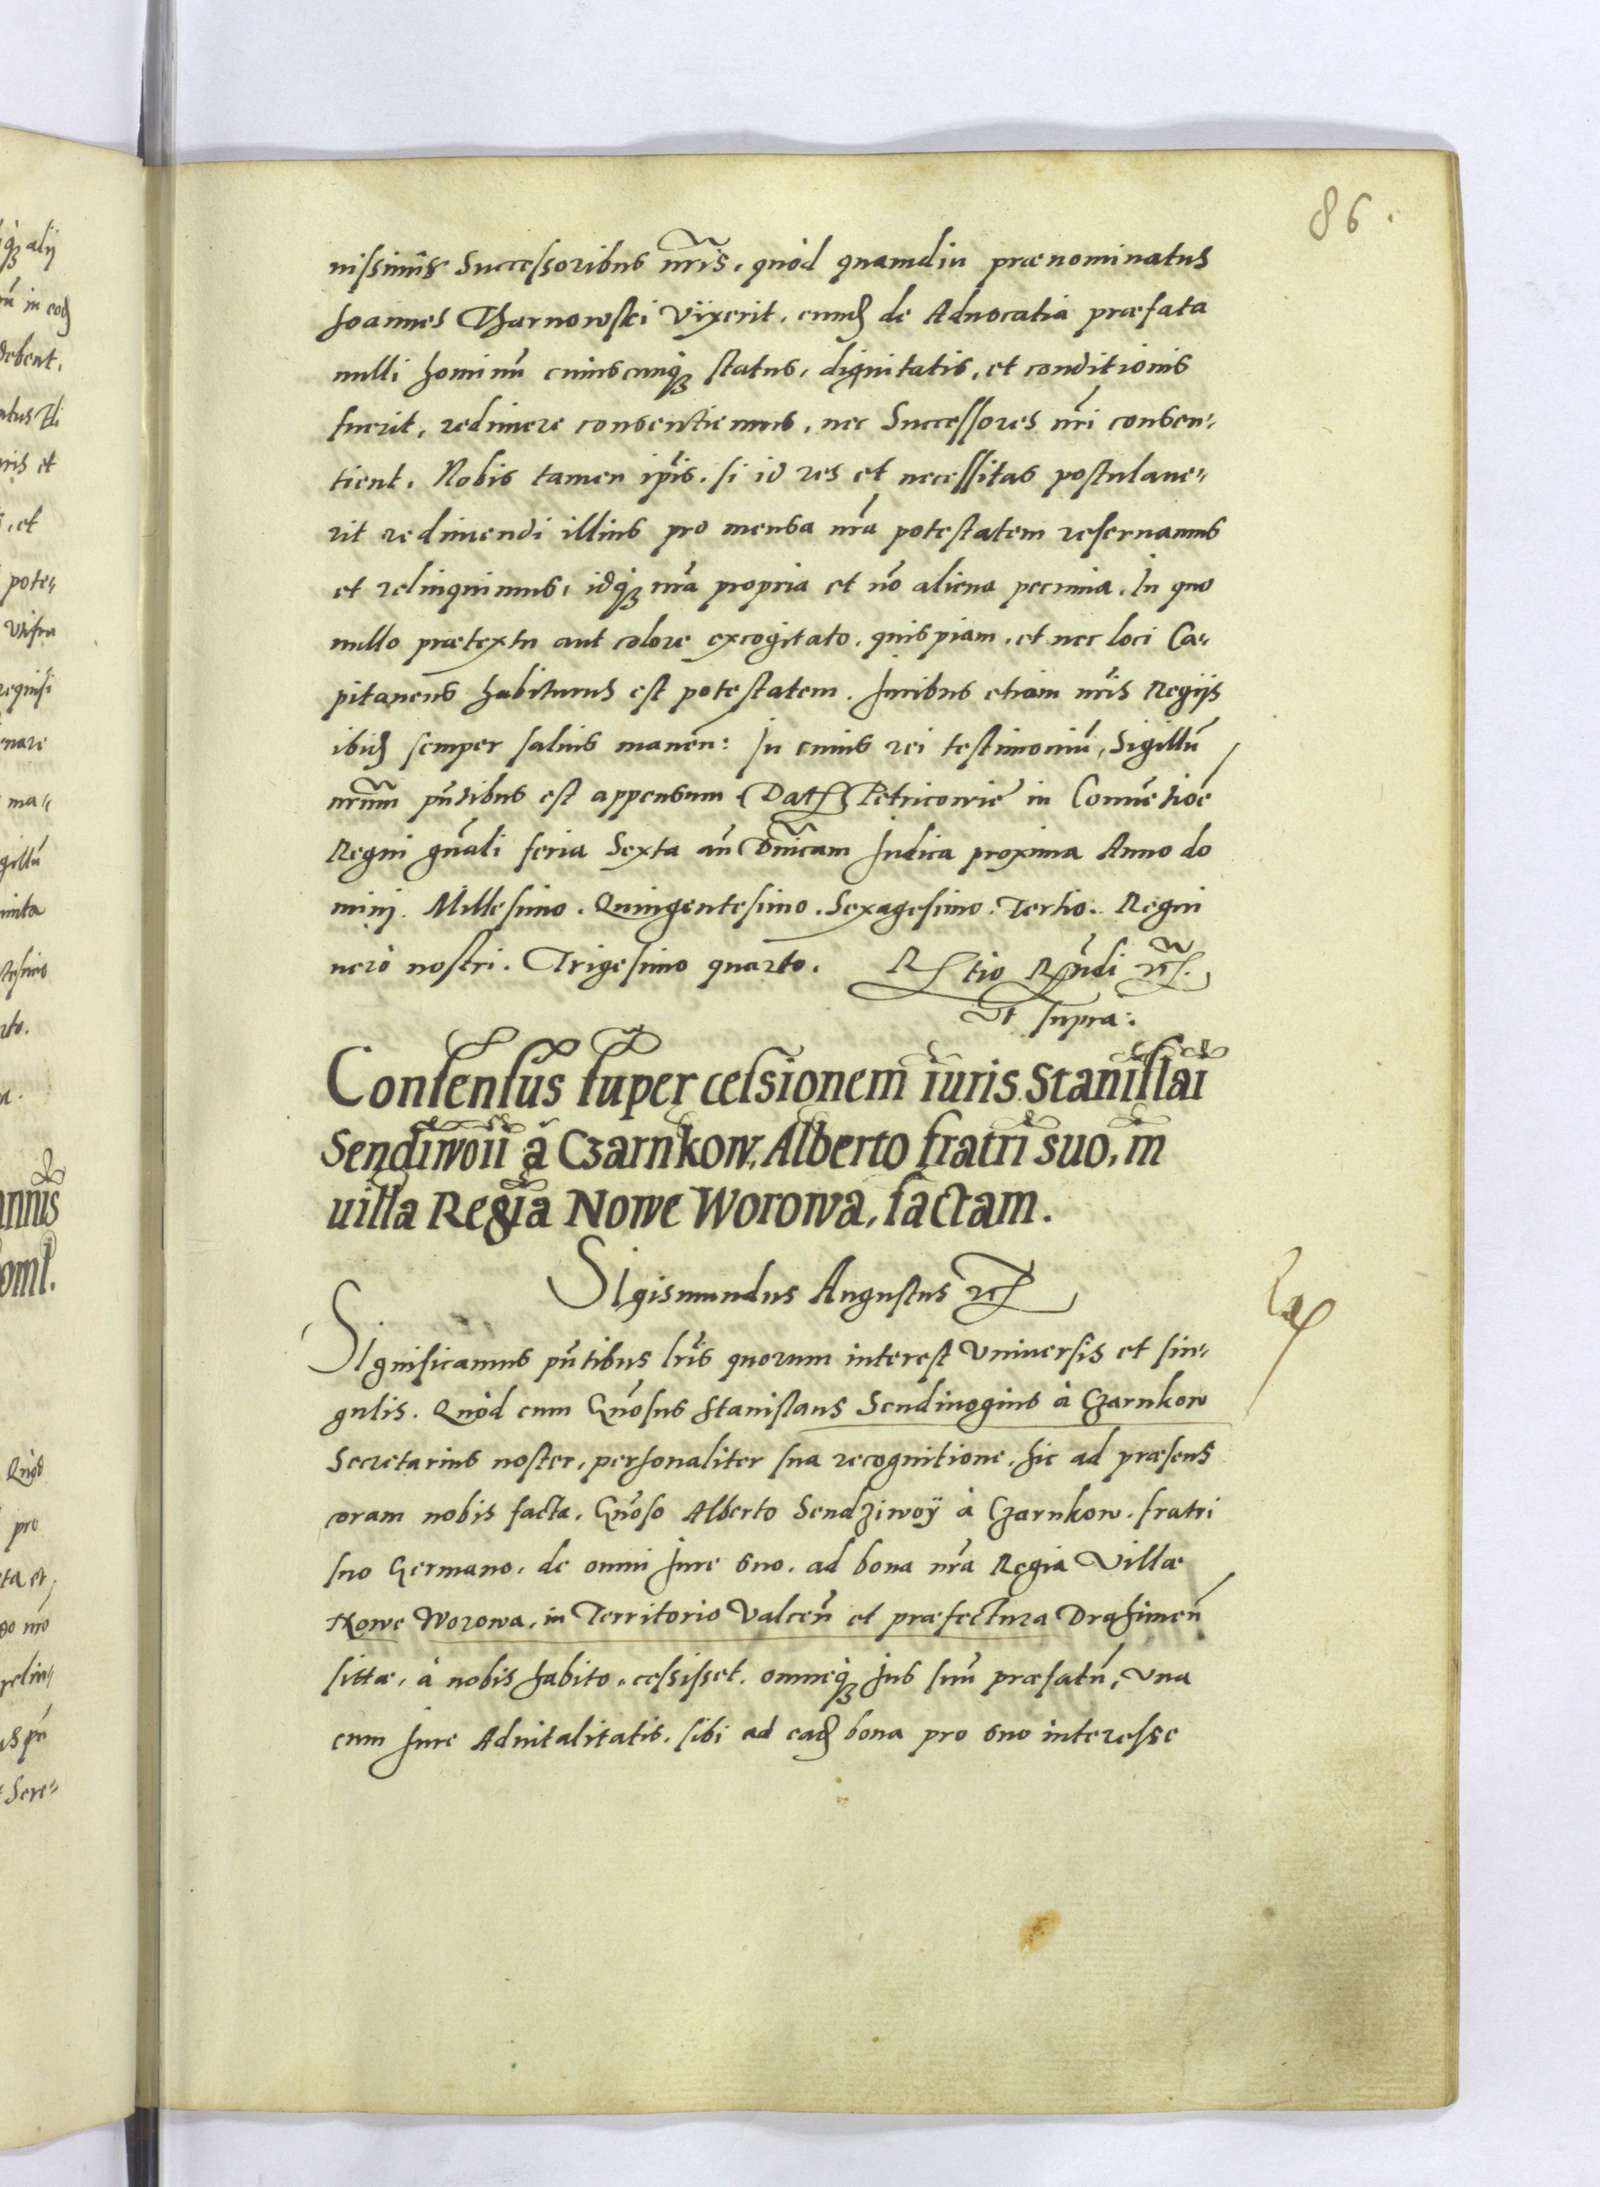 86.
nissimis Successoribus nr̃is, quòd quamdiu prænominatus
Joannes Tharnowski vixerit, eund de Aduocatia præfata
nulli hominũ cuiuscunq; status, dignitatis, et conditionis
fuerit, redimere consentiemus, nec Successores nr̃i consen-
tient. Nobis tamen ip̃is, si id res et necessitas postulaue-
rit redimendi illius pro mensa nr̃a potestatem reseruamus
et relinquimus, idq; nr̃a propria et nõ aliena pecunia. In quo
nullo prætextu aut colore excogitato, quispiam, et nec loci Ca-
pitaneus habiturus est potestatem. Juribus etiam nr̃is Regijs
ibid semper saluis maneñ: In cuius rei testimoniũ, Sigillũ
nrũm pñtibus est appensum. Dat Petricouiẽ in Conuẽtiõe
Regni gñali feria Sexta añ Dñicam Judica proxima Anno do
mini. Millesimo. Quingentesimo. Sexagesimo. Tertio. Regni
uerò nostri. Trigesimo quarto. Rtio Rñdi etc.
Vt supra:
Consensus super cessionem iuris Stanislai
Sendiwoii à Czarnkow, Alberto fratri suo, in
uilla Regia Nowe Worowa, factam.
Sigismundus Augustus etc
Significamus pñtibus lr̃is quorum interest vniuersis et sin-
gulis. Quòd cum Gñosus Stanislaus Sendiuogius à Czarnkow
Secretarius noster, personaliter sua recognitione, hic ad præsens
coram nobis facta, Gñoso Alberto Sendziwoÿ à Czarnkow, fratri
suo Germano, de omni Jure suo, ad bona nr̃a Regia Villæ
Nowe Worowa, in Territorio Valceñ et præfectura Drahimeñ
sittæ, à nobis habito, cessisset, omneq; Jus suũ præfatũ, vna
cum Jure Aduitalitatis, sibi ad ead bona pro suo interesse